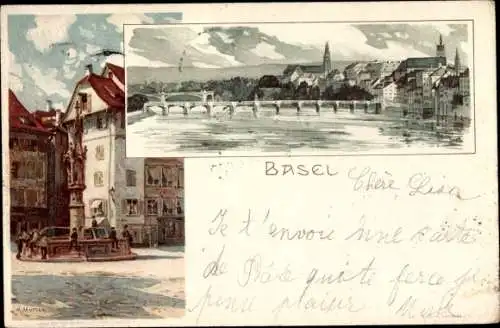 BASEL
Chère Lisa
Je t'envoie une carte
de Bâle qui te fera
plaisir